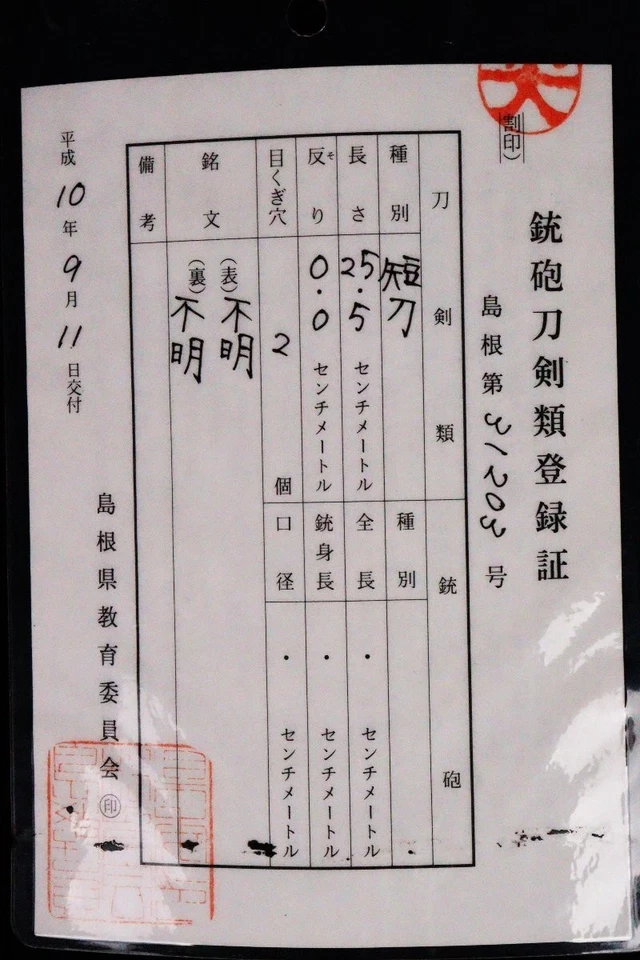 割印）
銃砲刀剣類登録証
島根第31203号
刀剣類
銃砲
種別
短刀
種別
長さ
25.5センチメートル
全長
・センチメートル
反り
そ
0.0センチメートル
銃身長
・センチメートル
目くぎ穴
2個
口径
・センチメートル
銘文
（表）不明
（裏）不明
備考
平成10年9月11日交付
島根県教育委員会㊞